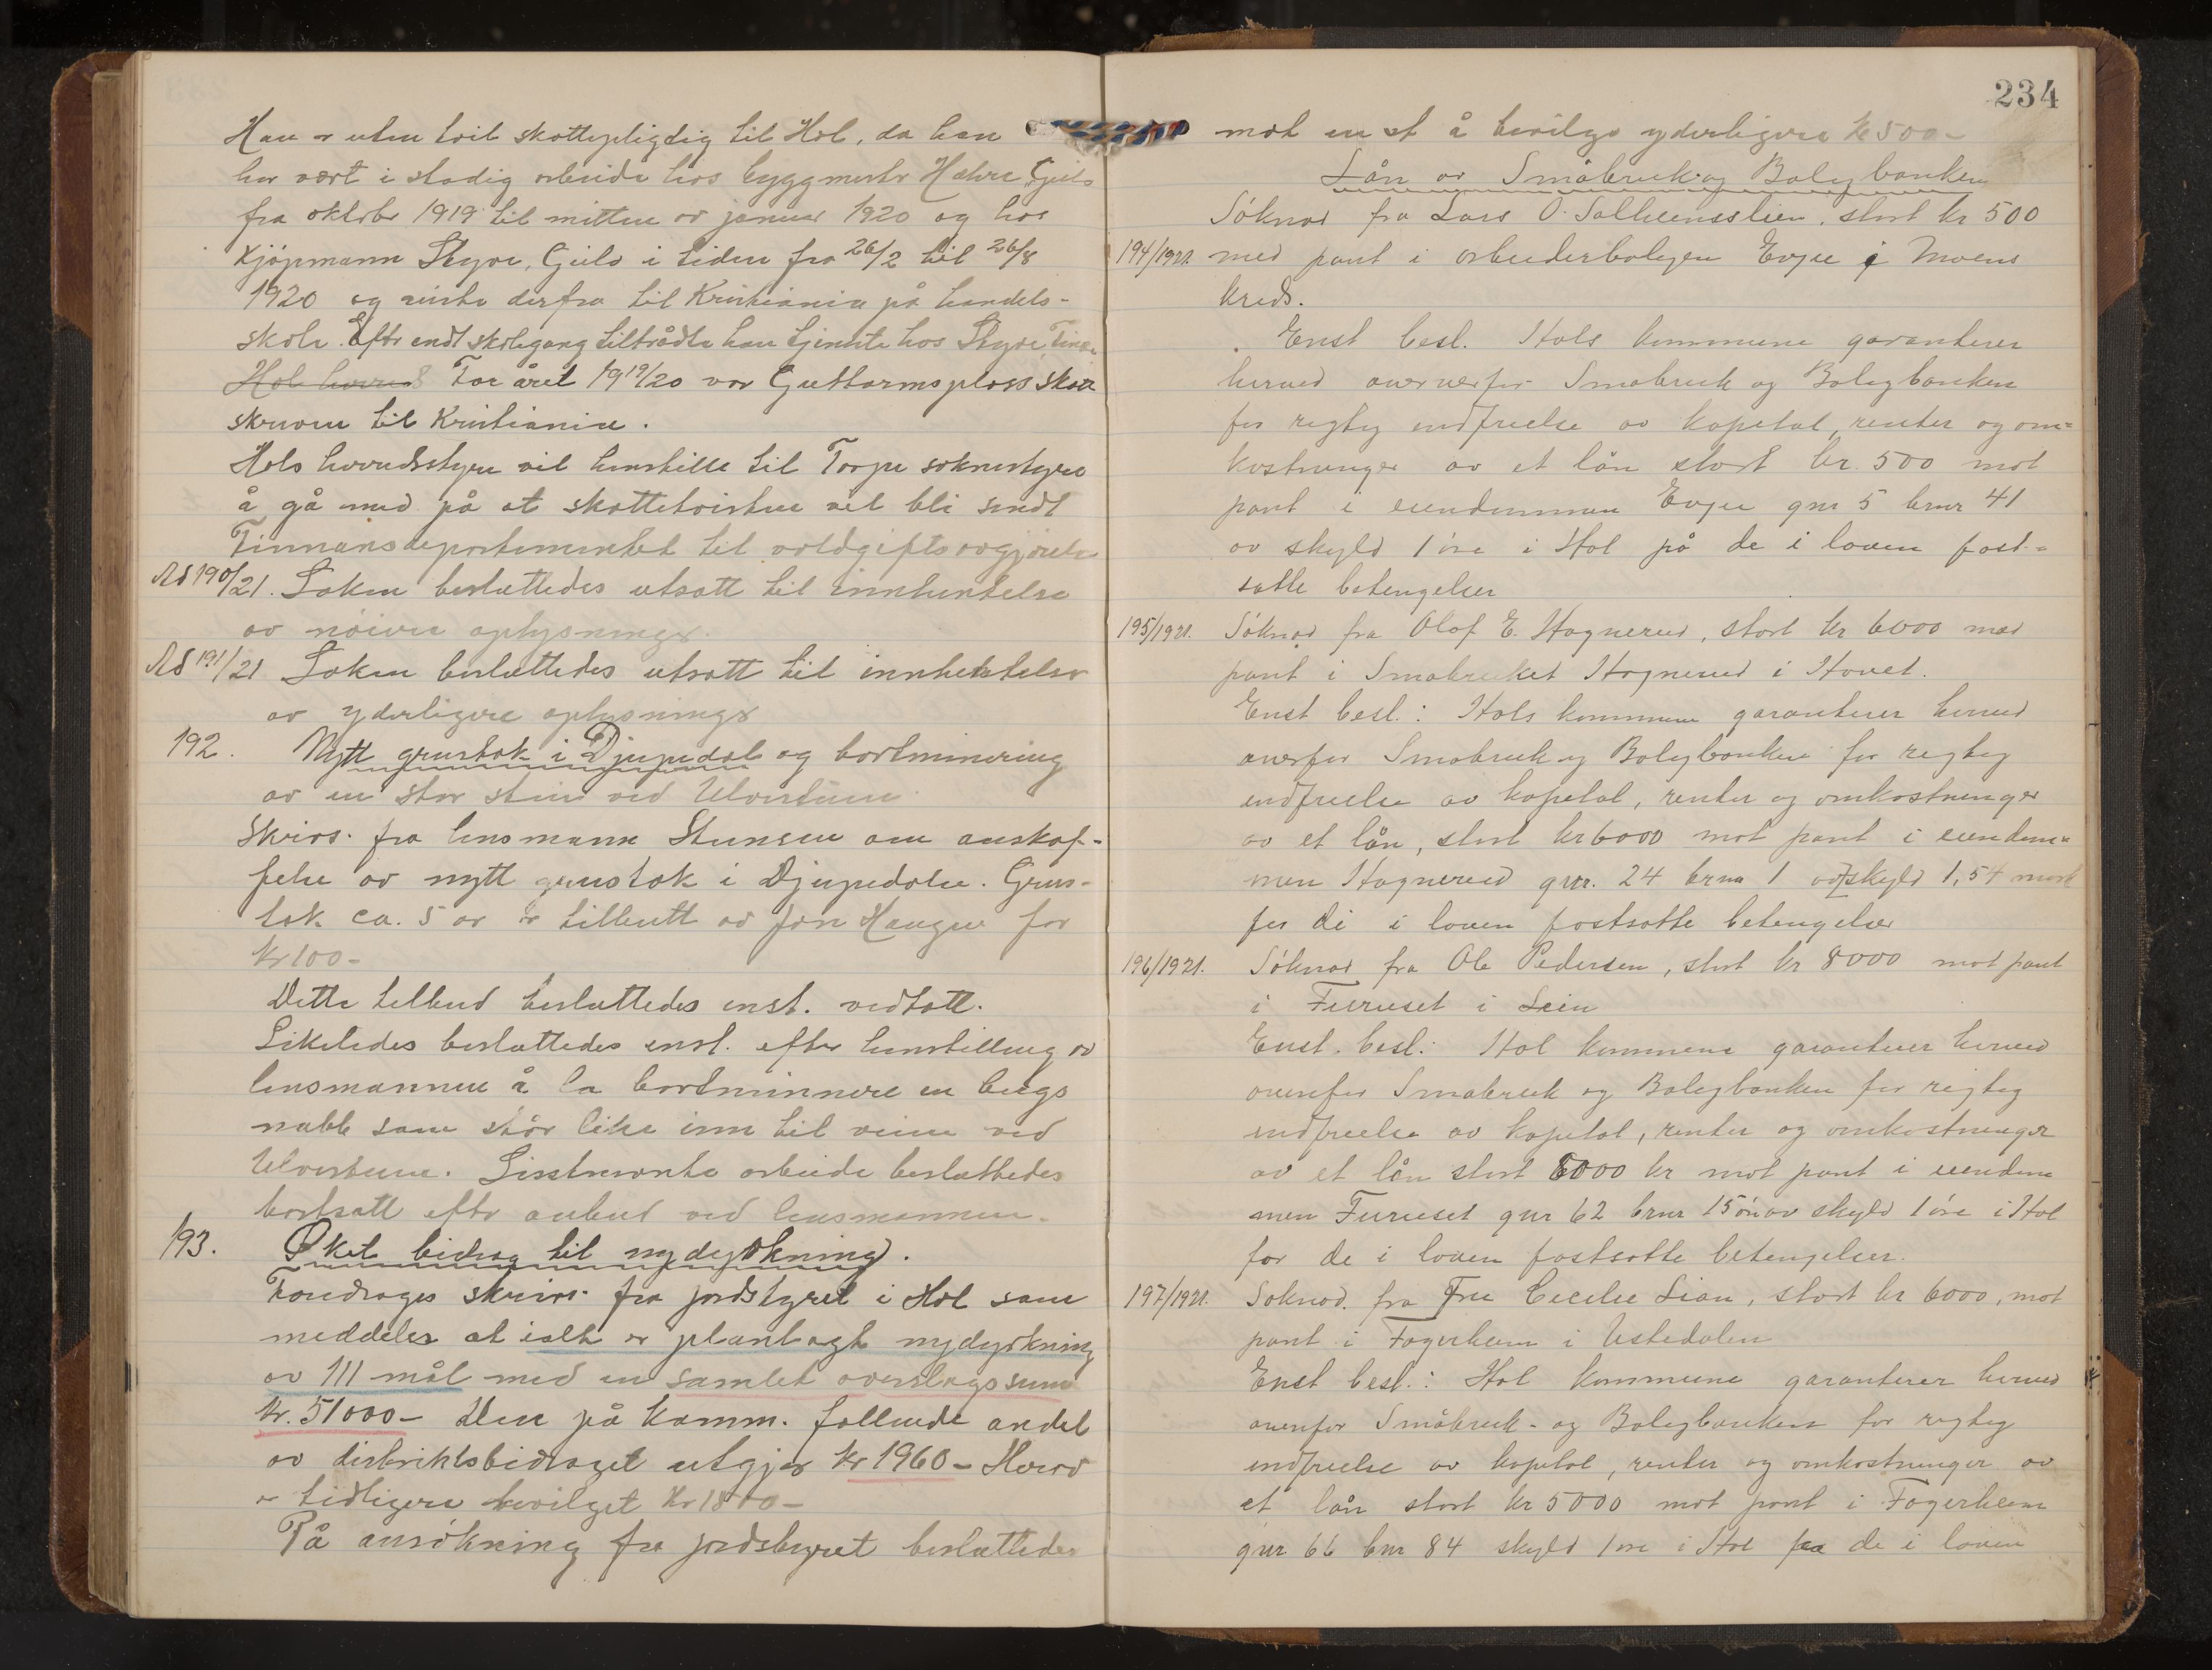 Han er uten tvil skattepligtig til Hol, da han
har vært i stadig arbeide hos byggmester Hæhre, Geilo
fra oktober 1919 til midten av januar 1920 og hos
Kjøpmann Skyve, Geilo i tiden fra 26/2 til 26/8
1920 og reiste derfra til Kristiania på handels-
skole. Efter endt skolegang tiltrådte han tjeneste hos Skyve,
Hol For året 1919/20 var Guttormsplass skatt
skreven til Kristiania.
Hols herredsstyre vil henstille til Torpe soknestyre
å gå med på at skattetvisten vel bli sendt
Finnansdepartementet til voldgiftsavgjørelse
Ad 190/21. Saken besluttedes utsatt til innhentelse
av nøiere oplysninger.
Ad 191/21 Saken besluttedes utsatt til innhentelse
av yderligere oplysninger
192. Nytt grustak i Djupedal og bortminering
av en stor stein ved Ulvestuene
Skriv. fra lensmann Stensen om anskaf-
felse av nytt grustak i Djupedalen. Grus-
tak ca. 5 ar er tilbutt av Jon Haugen for
Kr 100-
Dette tilbud besluttedes enst. vedtatt.
Likeledes besluttedes enst. efter henstilling av
lensmannen å la bortminnere en bergs
nabb som står like inn til veien ved
Ulvestuene. Sisstnevnte arbeide besluttedes
bortsatt efter anbud ved lensmannen.
193. Øket bidrag til nydyrkning.
Foredrages skriv. fra jordstyret i Hol som
meddeler at ialt er planlagt nydyrkning
av 111 mål med en samlet overslagssum
Kr. 51000- Den på komm. fallende andel
av distriktsbidraget utgjør kr 1960- Herav
er tidligere bevilget Kr 1800-
På ansøkning fra jordstyret besluttedes
234
mot en st å bevilge yderligere kr 500-
Lån av Småbruk og Boligbanken
Søknad fra Lars O. Solheimsslien, stort kr 500
194/1921. med pant i arbeiderboligen Evju i Moens
kreds.
Enst besl. Hols kommune garanterer
herved overfor Småbruk og Boligbanken
for rigtig indfrielse av kapital, renter og om=
kostninger av et lån stort kr. 500 mot
pant i eiendommen Evju gnr 5 brnr 41
av skyld 1 øre i Hol på de i loven fast=
satte betengelser
195/1921. Søknad fra Olaf E. Hagnerud, stort kr 6000 med
pant i Småbruket Hagnerud i Hovet.
Enst besl.: Hols kommune garanterer herved
overfor Småbruk og Boligbanken for regtig
indfrielse av kapital, renter og omkostninger
av et lån, stort kr 6000 mot pant i eiendom=
men Hagnerud gnr. 24 brnr 1 av skyld 1,54 mark
for de i loven fastsatte betengelser
196/1921. Søknad fra Ole Pedersen, stort kr 8000 mot pant
i Furuset i Lien
Enst. besl.: Hol kommune garanterer herved
overfor Småbruk og Boligbanken for rigtig
indfrielse av kapital, renter og omkostninger
av et lån stort 6000 kr mot pant i eiendom
men Furuset gnr 62 brnr 15 av skyld 1 øre i Hol
for de i loven fastsatte betengelser.
197/1921. Søknad. fra Fru Cecilie Lian, stort kr 6000, mot
pant i Fagerheim i Ustedalen
Enst besl.: Hol kommune garanterer herved
overfor Småbruk- og Boligbanken for rigtig
indfrielse av kapital, renter og omkostninger av
et lån stort kr 5000 mot pant i Fagerheim
gnr 66 bnr 84 skyld 1 øre i Hol paa de i loven